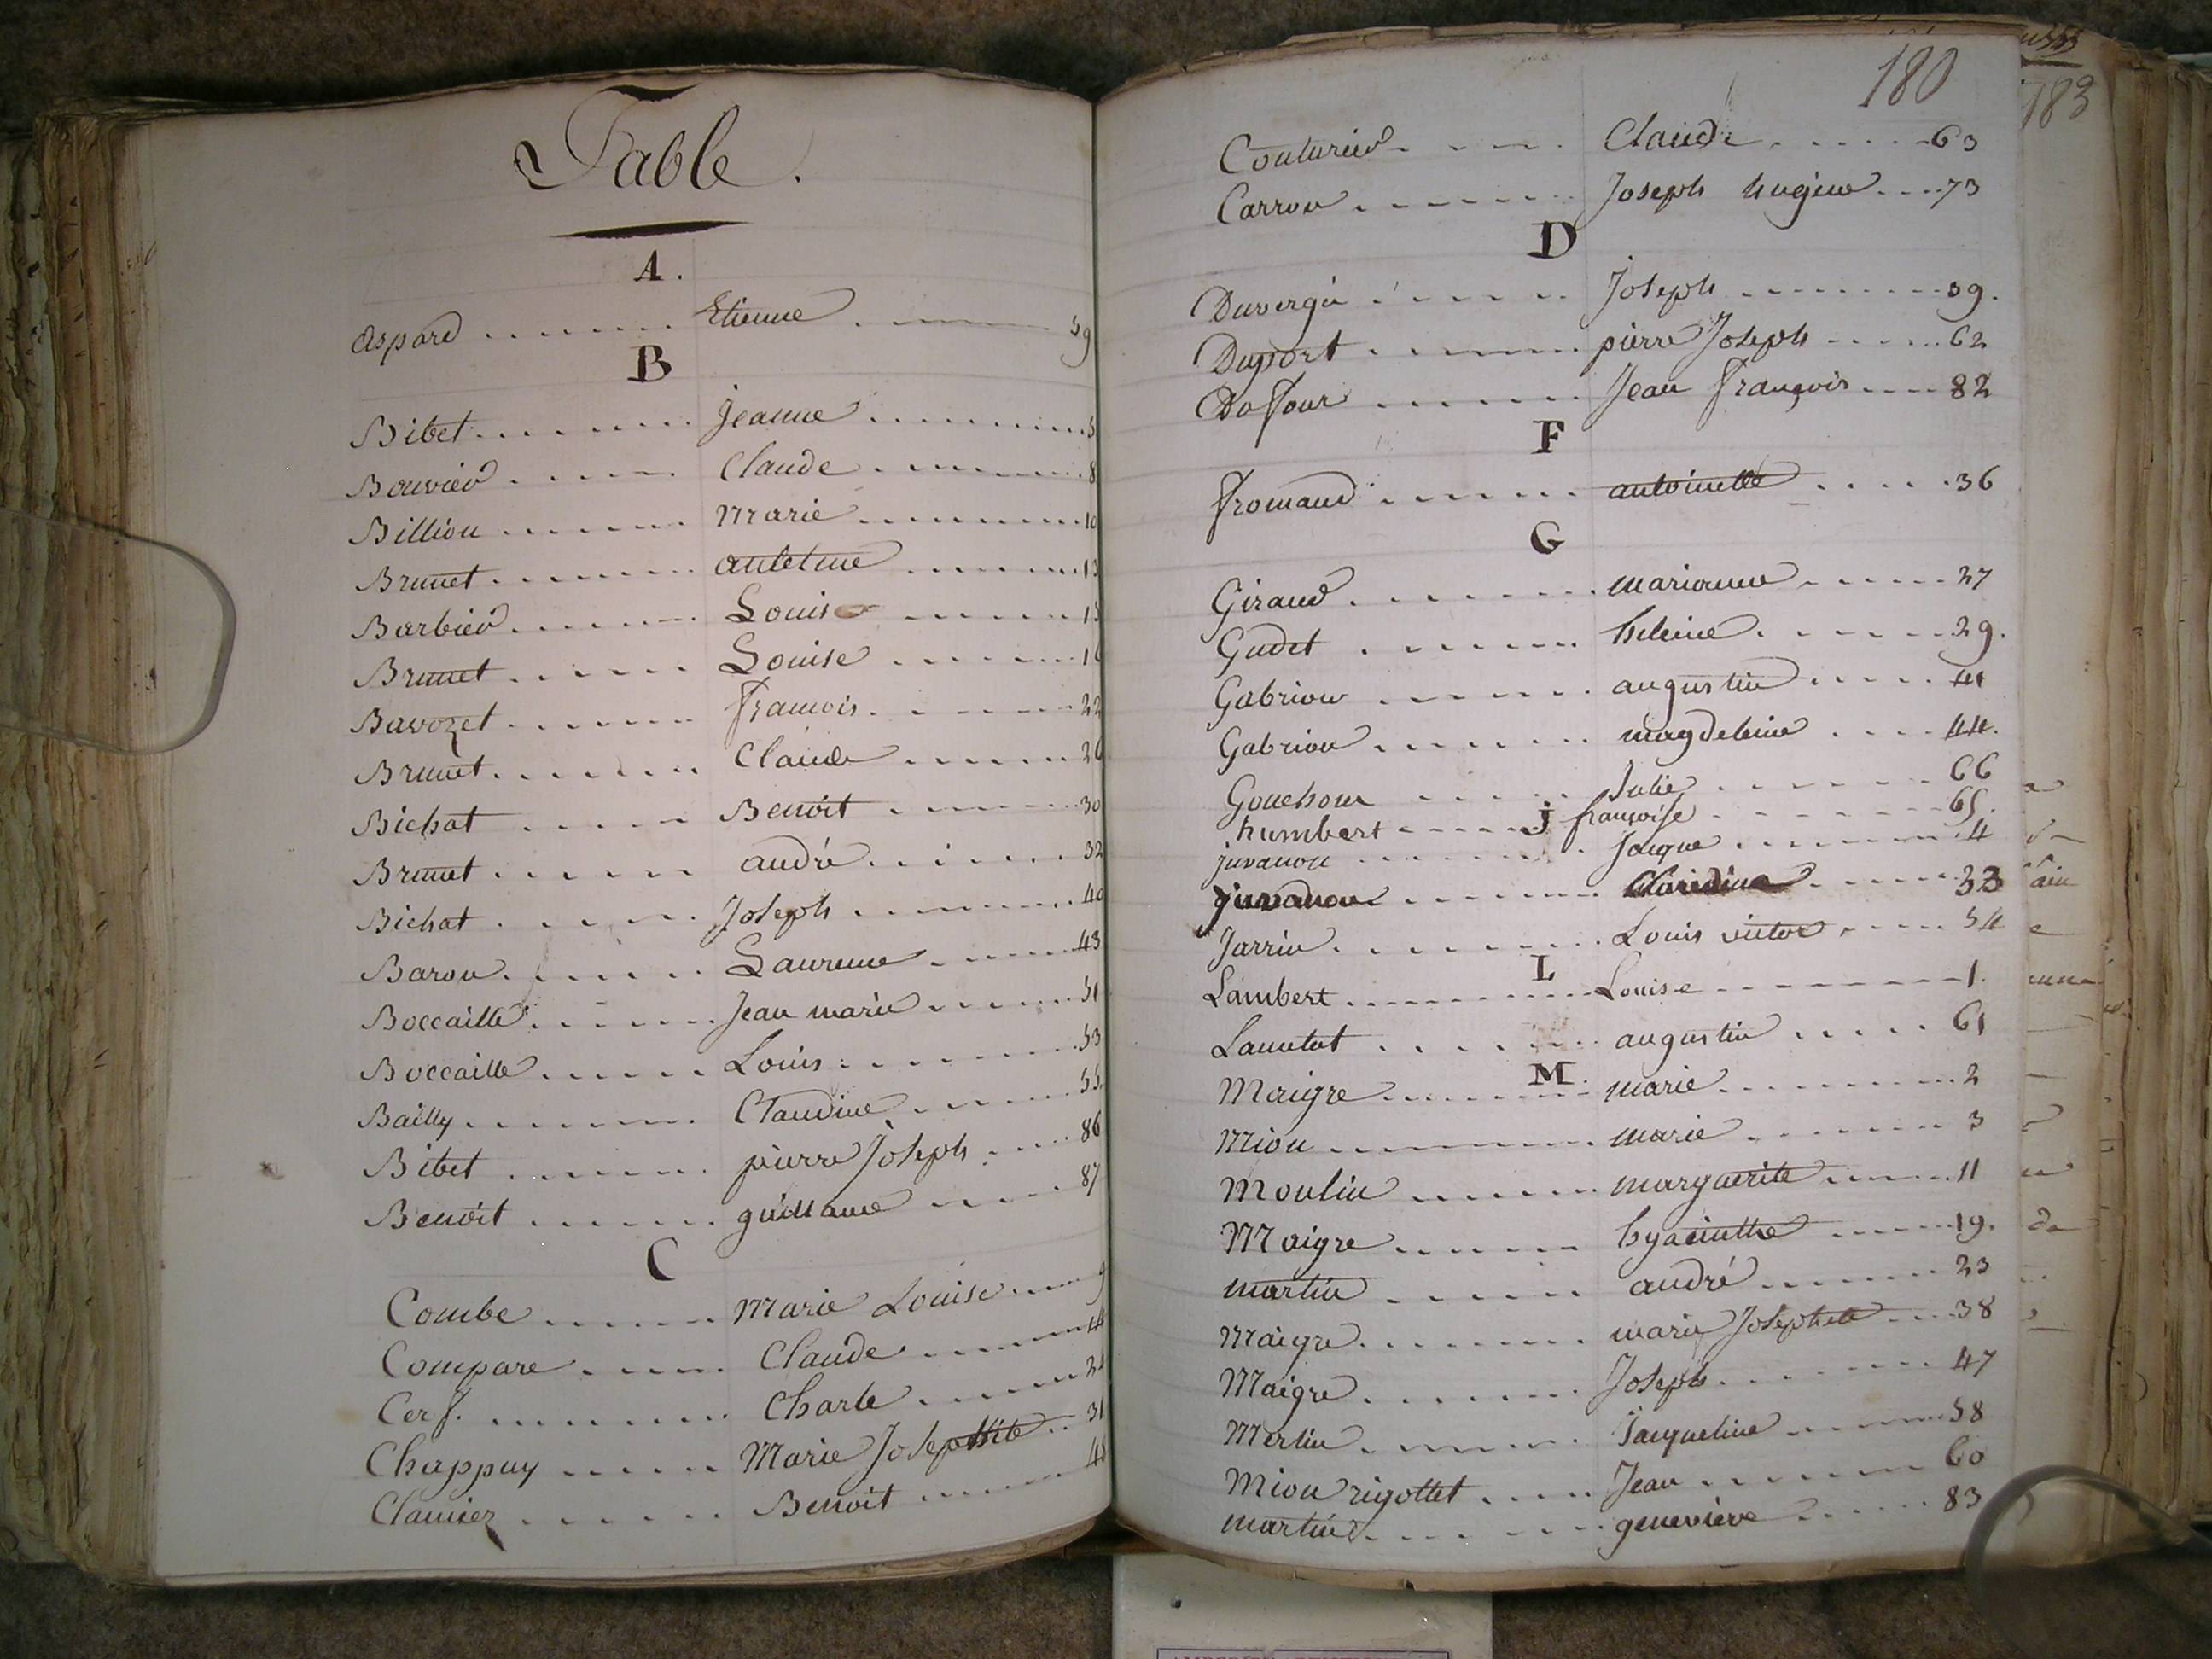 Table.
A.
aspard Etienne 59
B
Bibet Jeanne 5
Bouvier Claude 8
Billion Marie 10
Brunet antelme 13
Barbier Louis 15
Brunet Louise 16
Bavozet francois 22
Brunet Claude 26
Bichat Benoit 30
Brunet andré 32
Bichat Joseph 40
Baron Laurence 43
Boccaille Jean marie 51
Boccaille Louis 53
Bailly Claudine 55
Bibet pierre Joseph 86
Benoit guillaume 87
C
Combe Marie Louise 9
Compare Claude 14
Cerf. Charle
Chappuy Marie Josephte 31
Claniez Benoit
180
Couturier Claude 63
Carron Joseph hugene 73
D
Duvergie Joseph 39.
Duport pierre Joseph 62
Dofour Jean françois 82
F
fromand antoinette 36
G
Giraud marianne 27
Gudet heleine 29.
Gabrion augustin 41
Gabrion magdeleine 44.
Gouchon Julie 66
humbert J françoise 65.
juvanon Jaque 4
juvanon Claudine 33
Jarrin Louis victor 54
L
Lambert Louise 1.
Lauutat augustin 61
M
Maigre marie 2
Mion marie 3
Moulin marguerite 11
Maigre hyacinthe 19.
martin andré 23
Maigre marie Josephete 38
Maigre Joseph 47
Merlin Jacqueline 58
Mion rigottet Jean 60
martin genevieve 83
183